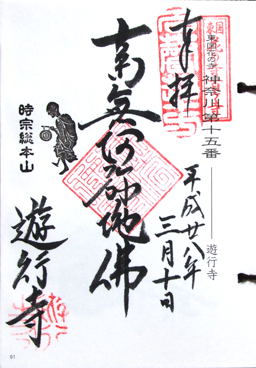 東国花の寺
神奈川第十五番
遊行寺
奉拝
平成廿八年
三月十日
南無阿弥陀佛
時宗総本山
遊行寺